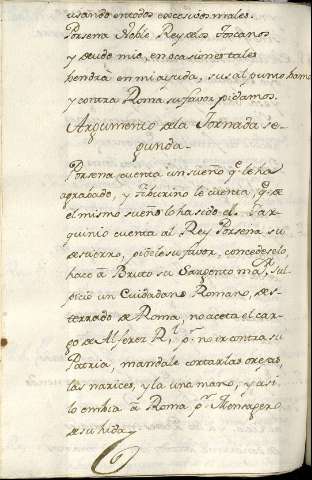 usando en todos excesivos males.
Porsena Noble Rey de los Toscanos
y deudo mio, en ocasiones tales
bendrà en mi aiuda, sus al punto bamos
y contra Roma su favor pidamos.
Argumento de la Jornada se-
gunda.
Porsena cuenta un sueño qe. le ha
agrabado, y Tiburino le cuenta qe. de
el mismo sueño lo ha sido el. Tar-
quinio cuenta al Rey Porsena su
destierro, pidele su favor, concedeselo,
hace à Bruto su Sargento mar. Sul-
picio un Ciudadano Romano, des-
terrado de Roma, no aceta el car-
go de Alferez Rl. pr. no ir contra su
Patria, mandale cortar las orejas,
las narices, y la una mano, y asi
lo embia à Roma pr. Mensagero
de su hida.